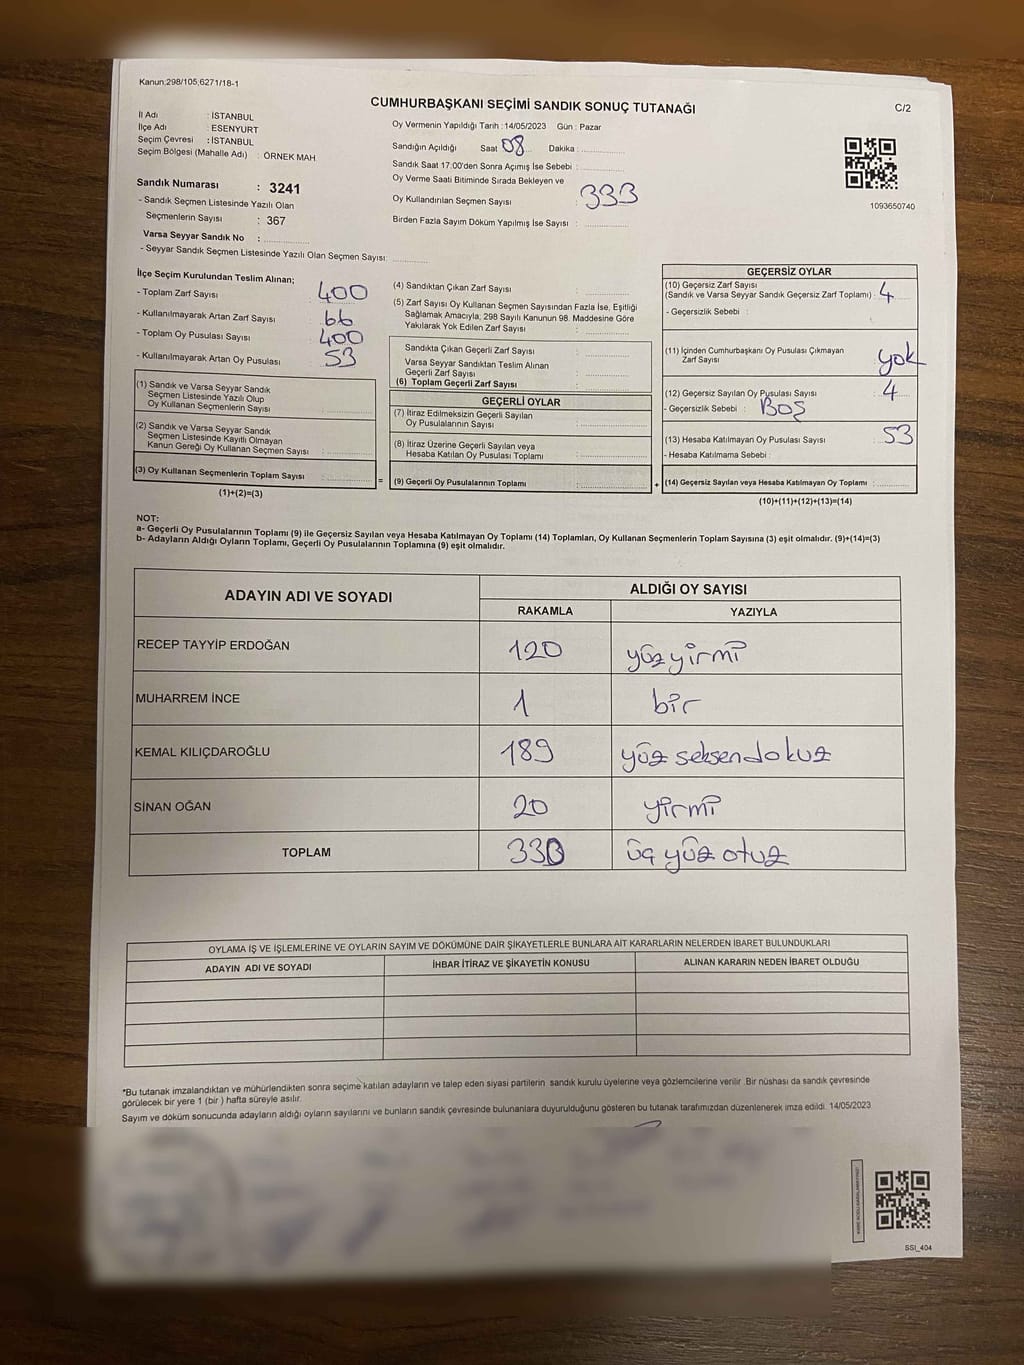 Kanun:298/105,6271/18-1
CUMHURBAŞKANI SEÇİMİ SANDIK SONUÇ TUTANAĞI
C/2
İl Adı : İSTANBUL
İlçe Adı : ESENYURT
Seçim Çevresi : İSTANBUL
Seçim Bölgesi (Mahalle Adı) : ÖRNEK MAH
Sandık Numarası : 3241
- Sandık Seçmen Listesinde Yazılı Olan
Seçmenlerin Sayısı : 367
Varsa Seyyar Sandık No :
- Seyyar Sandık Seçmen Listesinde Yazılı Olan Seçmen Sayısı:
Oy Vermenin Yapıldığı Tarih :14/05/2023 Gün : Pazar
Sandığın Açıldığı Saat 08 Dakika :
Sandık Saat 17.00'den Sonra Açımış İse Sebebi :
Oy Verme Saati Bitiminde Sırada Bekleyen ve
Oy Kullandırılan Seçmen Sayısı : 333
Birden Fazla Sayım Döküm Yapılmış İse Sayısı :
1093650740
İlçe Seçim Kurulundan Teslim Alınan;
- Toplam Zarf Sayısı 400
- Kullanılmayarak Artan Zarf Sayısı 66
- Toplam Oy Pusulası Sayısı 400
- Kullanılmayarak Artan Oy Pusulası 53
(1) Sandık ve Varsa Seyyar Sandık
Seçmen Listesinde Yazılı Olup
Oy Kullanan Seçmenlerin Sayısı :
(2) Sandık ve Varsa Seyyar Sandık
Seçmen Listesinde Kayıtlı Olmayan
Kanun Gereği Oy Kullanan Seçmen Sayısı :
(3) Oy Kullanan Seçmenlerin Toplam Sayısı :
(1)+(2)=(3)
(4) Sandıktan Çıkan Zarf Sayısı :
(5) Zarf Sayısı Oy Kullanan Seçmen Sayısından Fazla İse, Eşitliği
Sağlamak Amacıyla; 298 Sayılı Kanunun 98. Maddesine Göre
Yakılarak Yok Edilen Zarf Sayısı :
Sandıkta Çıkan Geçerli Zarf Sayısı :
Varsa Seyyar Sandıktan Teslim Alınan
Geçerli Zarf Sayısı :
(6) Toplam Geçerli Zarf Sayısı :
GEÇERLİ OYLAR
(7) İtiraz Edilmeksizin Geçerli Sayılan
Oy Pusulalarının Sayısı :
(8) İtiraz Üzerine Geçerli Sayılan veya
Hesaba Katılan Oy Pusulası Toplamı :
= (9) Geçerli Oy Pusulalarının Toplamı : +
GEÇERSİZ OYLAR
(10) Geçersiz Zarf Sayısı
(Sandık ve Varsa Seyyar Sandık Geçersiz Zarf Toplamı) : 4
- Geçersizlik Sebebi :
(11) İçinden Cumhurbaşkanı Oy Pusulası Çıkmayan
Zarf Sayısı yok
(12) Geçersiz Sayılan Oy Pusulası Sayısı : 4
- Geçersizlik Sebebi : BOŞ
(13) Hesaba Katılmayan Oy Pusulası Sayısı : 53
- Hesaba Katılmama Sebebi :
(14) Geçersiz Sayılan veya Hesaba Katılmayan Oy Toplamı :
(10)+(11)+(12)+(13)=(14)
NOT:
a- Geçerli Oy Pusulalarının Toplamı (9) ile Geçersiz Sayılan veya Hesaba Katılmayan Oy Toplamı (14) Toplamları, Oy Kullanan Seçmenlerin Toplam Sayısına (3) eşit olmalıdır. (9)+(14)=(3)
b- Adayların Aldığı Oyların Toplamı, Geçerli Oy Pusulalarının Toplamına (9) eşit olmalıdır.
ADAYIN ADI VE SOYADI
ALDIĞI OY SAYISI
RAKAMLA YAZIYLA
RECEP TAYYİP ERDOĞAN 120 yüz yirmi
MUHARREM İNCE 1 bir
KEMAL KILIÇDAROĞLU 189 yüz seksendokuz
SİNAN OĞAN 20 yirmi
TOPLAM 330 üç yüz otuz
OYLAMA İŞ VE İŞLEMLERİNE VE OYLARIN SAYIM VE DÖKÜMÜNE DAİR ŞİKAYETLERLE BUNLARA AİT KARARLARIN NELERDEN İBARET BULUNDUKLARI
ADAYIN ADI VE SOYADI İHBAR İTİRAZ VE ŞİKAYETİN KONUSU ALINAN KARARIN NEDEN İBARET OLDUĞU
*Bu tutanak imzalandıktan ve mühürlendikten sonra seçime katılan adayların ve talep eden siyasi partilerin sandık kurulu üyelerine veya gözlemcilerine verilir .Bir nüshası da sandık çevresinde
görülecek bir yere 1 (bir ) hafta süreyle asılır.
Sayım ve döküm sonucunda adayların aldığı oyların sayılarını ve bunların sandık çevresinde bulunanlara duyurulduğunu gösteren bu tutanak tarafımızdan düzenlenerek imza edildi. 14/05/2023
SSI_404